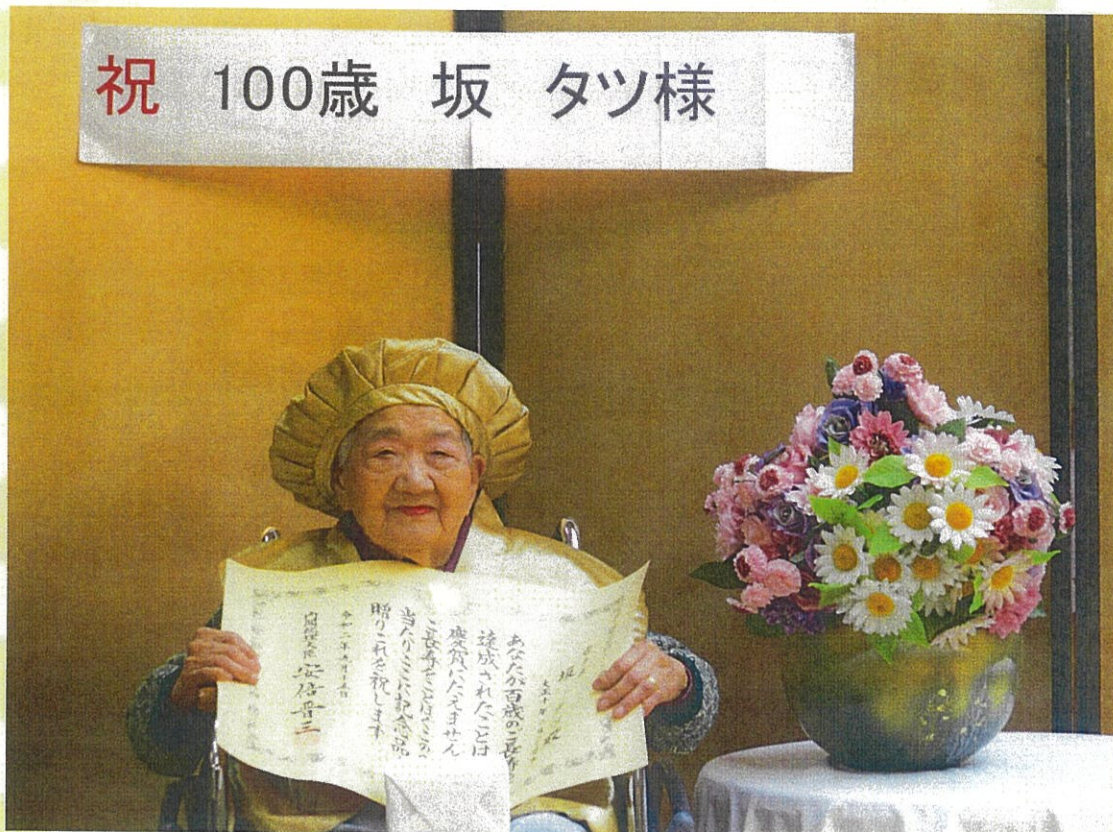 祝 100歳 坂 タツ様
あなたが百歳のご長寿
達成されたことは
慶賀にたえません
ご長寿をことほぎこの
当たりここに記念品
贈りこれを祝します
内閣総理大臣 安倍晋三